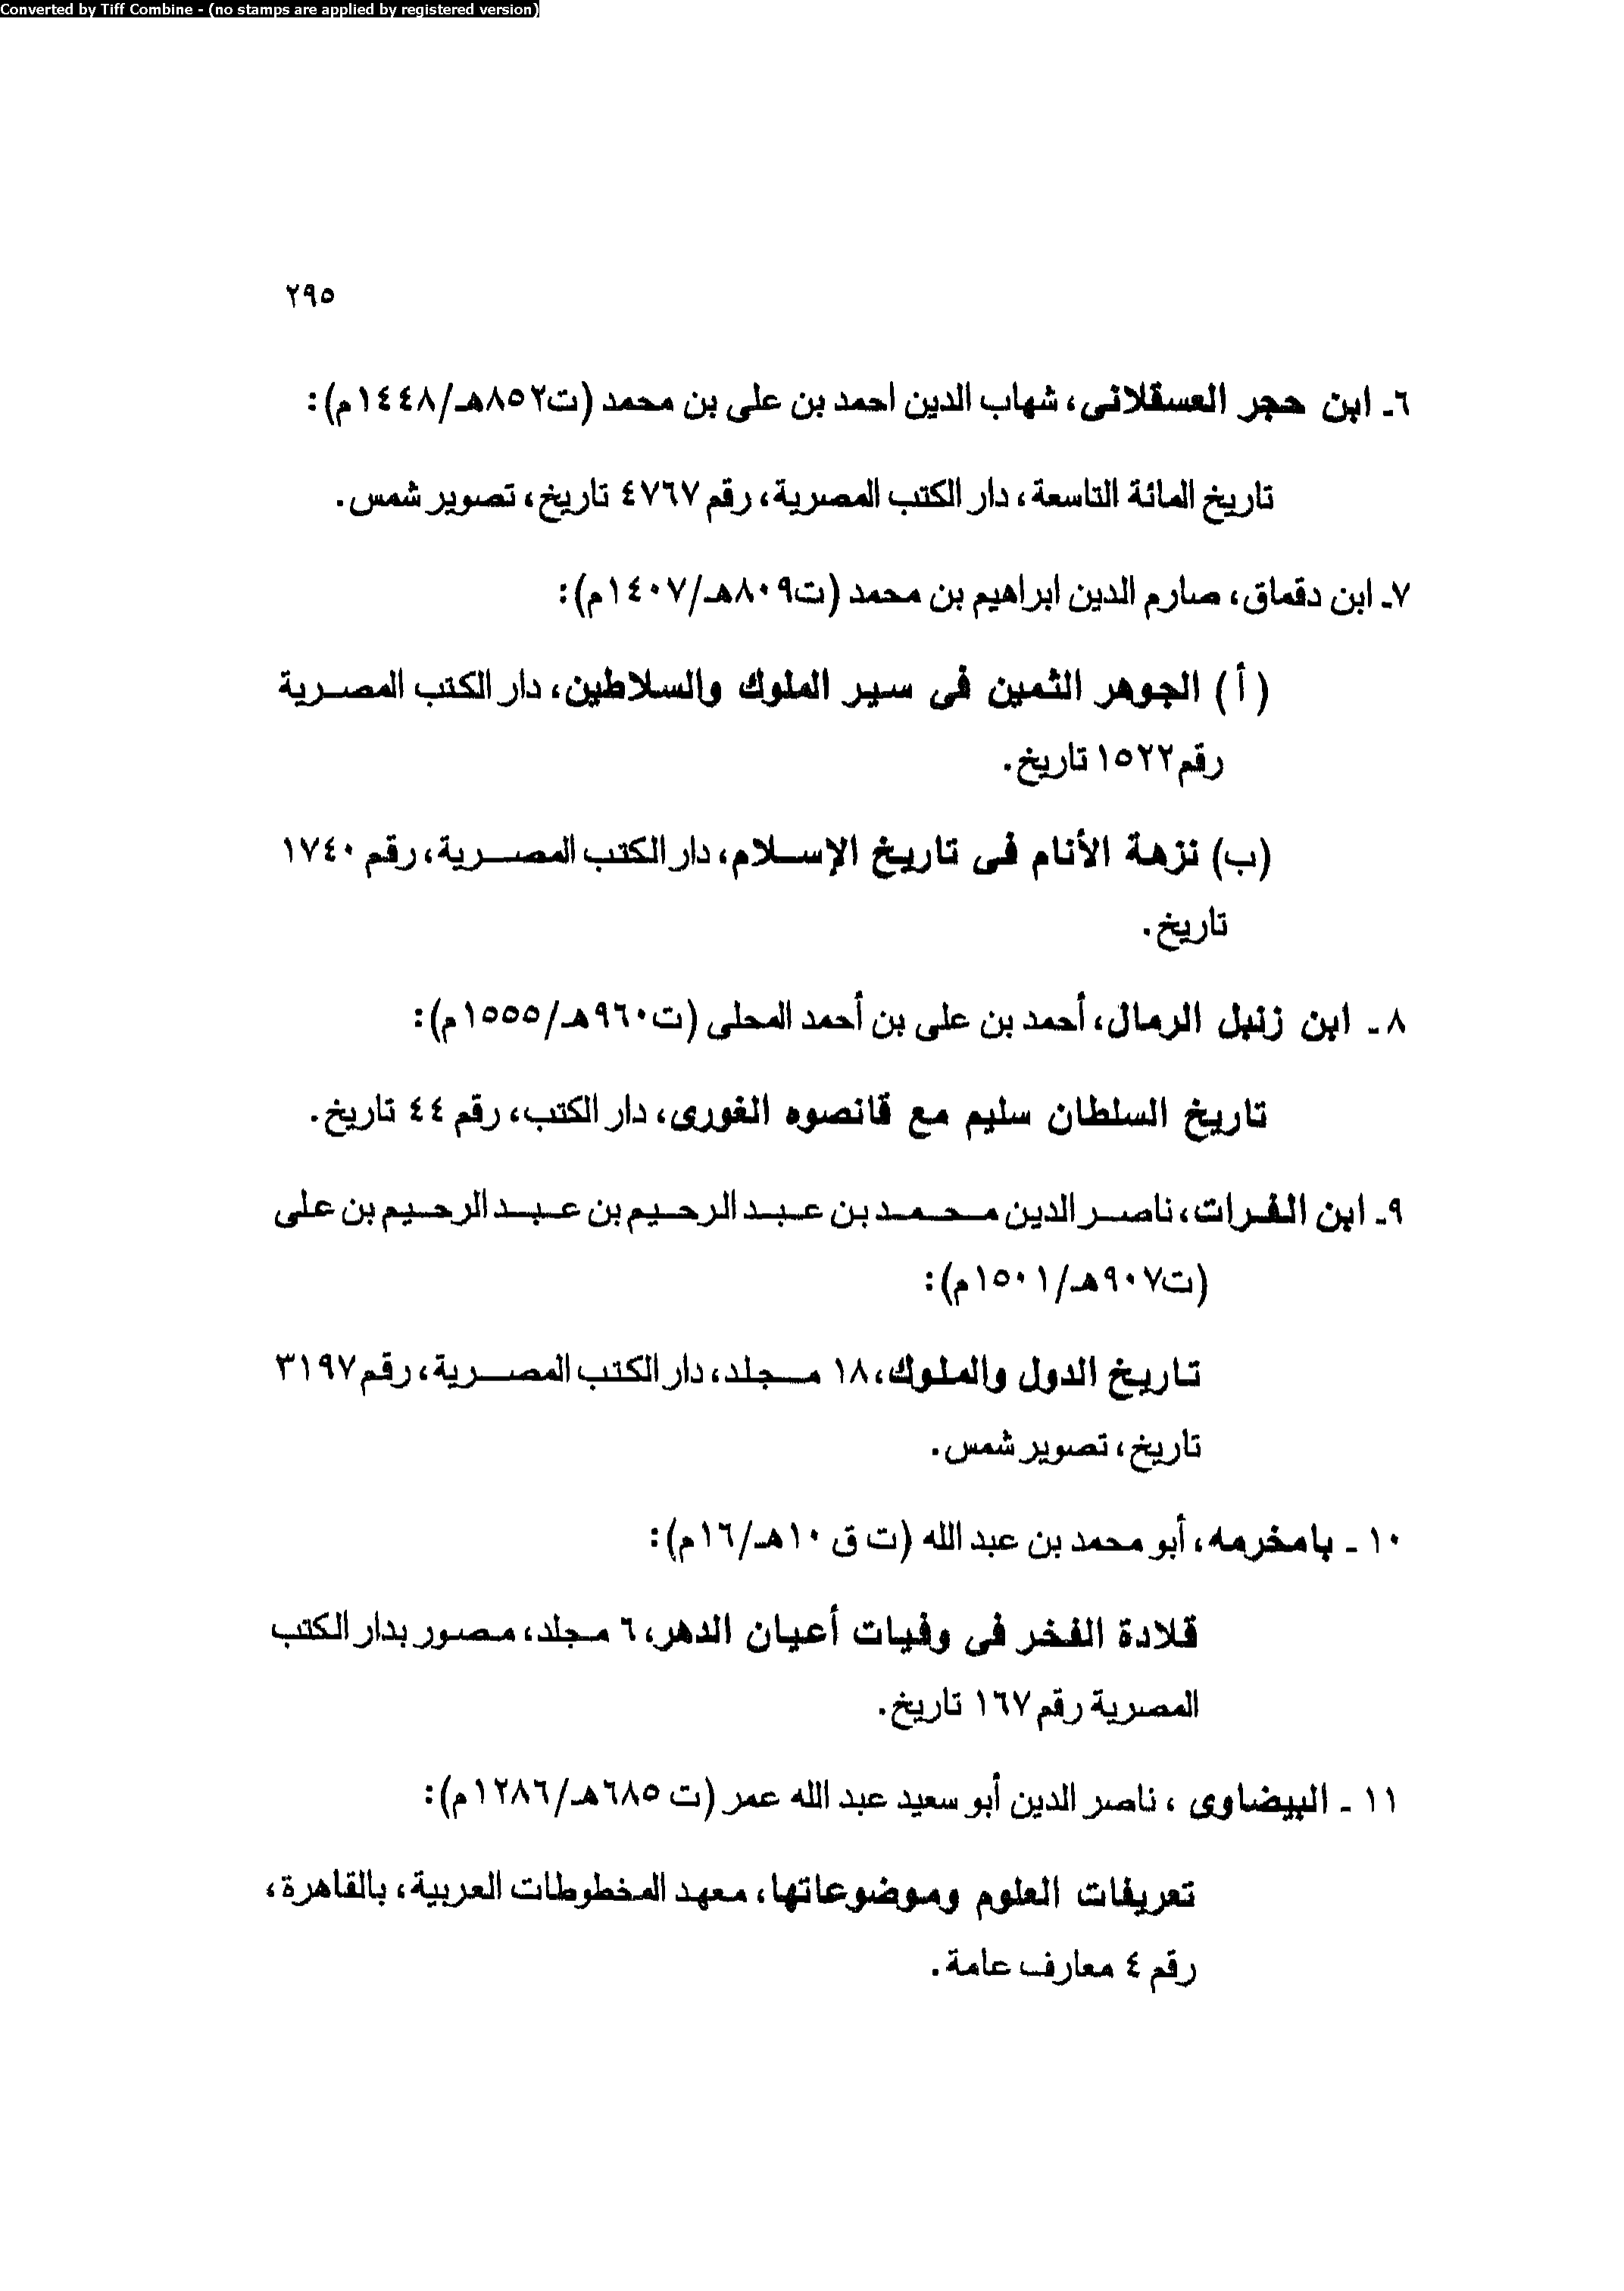 Converted by Tiff Combine - (no stamps are applied by registered version)
٢٩٥
٦ـ ابن حجر العسقلانى، شهاب الدين احمد بن على بن محمد (ت٨٥٢هـ/١٤٤٨م):
تاريخ المائة التاسعة، دار الكتب المصرية، رقم ٤٧٦٧ تاريخ، تصوير شمس.
٧ـ ابن دقماق، صارم الدين ابراهيم بن محمد (ت٨٠٩هـ/١٤٠٧م):
(أ) الجوهر الثمين فى سير الملوك والسلاطين، دار الكتب المصرية
رقم ١٥٢٢ تاريخ.
(ب) نزهة الأنام فى تاريخ الإسلام، دار الكتب المصرية، رقم ١٧٤٠
تاريخ.
٨ ـ ابن زنبل الرمال، أحمد بن على بن أحمد المحلى (ت٩٦٠هـ/١٥٥٥م):
تاريخ السلطان سليم مع قانصوه الغورى، دار الكتب، رقم ٤٤ تاريخ.
٩ـ ابن الفرات، ناصر الدين محمد بن عبد الرحيم بن عبد الرحيم بن على
(ت٩٠٧هـ/١٥٠١م):
تاريخ الدول والملوك، ١٨ مجلد، دار الكتب المصرية، رقم ٣١٩٧
تاريخ، تصوير شمس.
١٠ ـ بامخرمه، أبو محمد بن عبد الله (ت ق ١٠هـ/١٦م):
قلادة الفخر فى وفيات أعيان الدهر، ٦ مجلد، مصور بدار الكتب
المصرية رقم ١٦٧ تاريخ.
١١ ـ البيضاوى ، ناصر الدين أبو سعيد عبد الله عمر (ت ٦٨٥هـ/١٢٨٦م):
تعريفات العلوم وموضوعاتها، معهد المخطوطات العربية، بالقاهرة،
رقم ٤ معارف عامة.